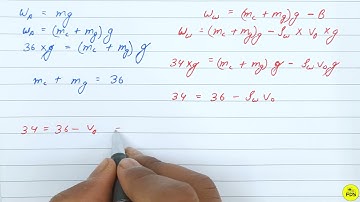 W_A = mg
W_A = (m_c + m_g) g
36 × g = (m_c + m_g) g
m_c + m_g = 36
W_w = (m_c + m_g) g - B
W_w = (m_c + m_g) g - ρ_w × V_o × g
34 × g = (m_c + m_g) g - ρ_w V_o g
34 = 36 - ρ_w V_o
34 = 36 - V_o =
PDS